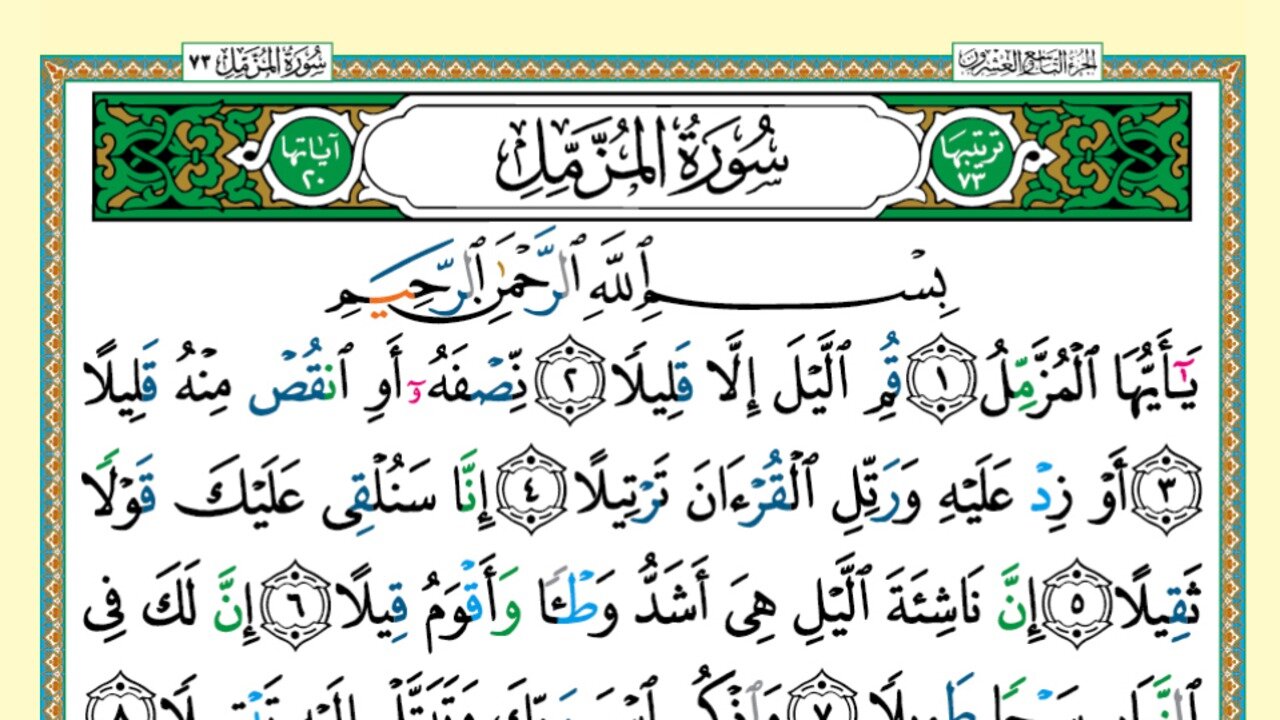 الجزء التاسع والعشرون
سورة المزمل ٧٣
ترتيبها ٧٣
سُورَةُ الْمُزَّمِّلِ
آياتها ٢٠
بِسْمِ ٱللَّهِ ٱلرَّحْمَٰنِ ٱلرَّحِيمِ
يَٰٓأَيُّهَا ٱلْمُزَّمِّلُ ١ قُمِ ٱلَّيْلَ إِلَّا قَلِيلًا ٢ نِّصْفَهُۥٓ أَوِ ٱنقُصْ مِنْهُ قَلِيلًا
٣ أَوْ زِدْ عَلَيْهِ وَرَتِّلِ ٱلْقُرْءَانَ تَرْتِيلًا ٤ إِنَّا سَنُلْقِى عَلَيْكَ قَوْلًا
ثَقِيلًا ٥ إِنَّ نَاشِئَةَ ٱلَّيْلِ هِىَ أَشَدُّ وَطْـًٔا وَأَقْوَمُ قِيلًا ٦ إِنَّ لَكَ فِى
ٱلنَّهَارِ سَبْحًا طَوِيلًا ٧ وَٱذْكُرِ ٱسْمَ رَبِّكَ وَتَبَتَّلْ إِلَيْهِ تَبْتِيلًا ٨